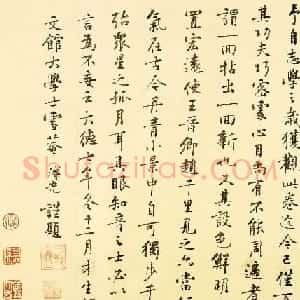 予自志學之歲獲觀此卷迄今已僅
其功夫巧密處心目尚有不能周遍者
謂一回拈出一回新也又其設色鮮明
置宏遠使王晉卿趙千里見之亦當短
氣在古今丹青小景中自可獨步千
殆眾星之孤月耳具眼知音之士必以
言為不妄云大德七年冬十二月才生
文館大學士雪菴溥光謹題
Shufazitao.com